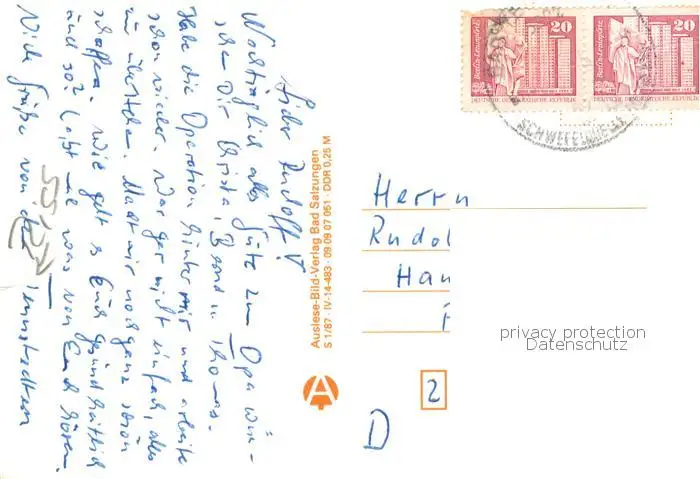 Lieber Rudolf!
Nachträglich alles Gute zum Opa wün-
schen Dir Christa, Bernd u. Thomas.
Habe die Operation hinter mir und arbeite
schon wieder. War gar nicht einfach, alles
zu überstehen. Macht mir noch ganz schön
schaffen. Wie geht es Euch gesundheitlich
und so? Laßt mal was von Euch hören.
Viele Grüße von den
Auslese-Bild-Verlag Bad Salzungen
S 1/87 · IV-14-483 · 09 09 07 051 · DDR 0,25 M
Berlin-Leninplatz 20
DEUTSCHE DEMOKRATISCHE REPUBLIK
Berlin-Leninplatz 20
DEUTSCHE DEMOKRATISCHE REPUBLIK
Herrn
Rudol
Han
privacy protection
Datenschutz
A
2
D